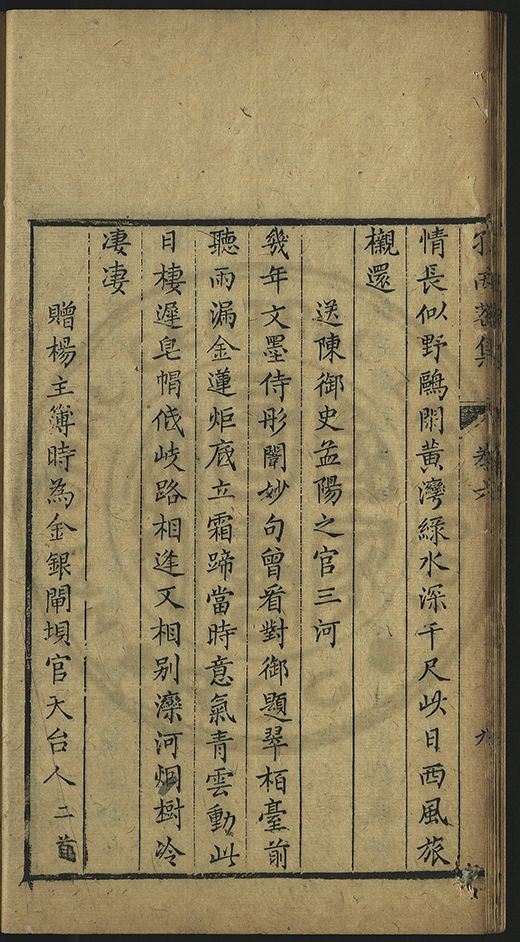 情長似野鷗閑黃灣綠水深千尺此日西風旅
櫬還
送陳御史益陽之官三河
幾年文墨侍彤闈妙句曾看對御題翠栢臺前
聽雨漏金蓮炬底立霜蹄當時意氣青雲動此
日棲遲皂帽低岐路相逢又相别灤河烟樹冷
凄凄
贈楊主簿時為金銀閘垻官天台人二首
集
卷六
九